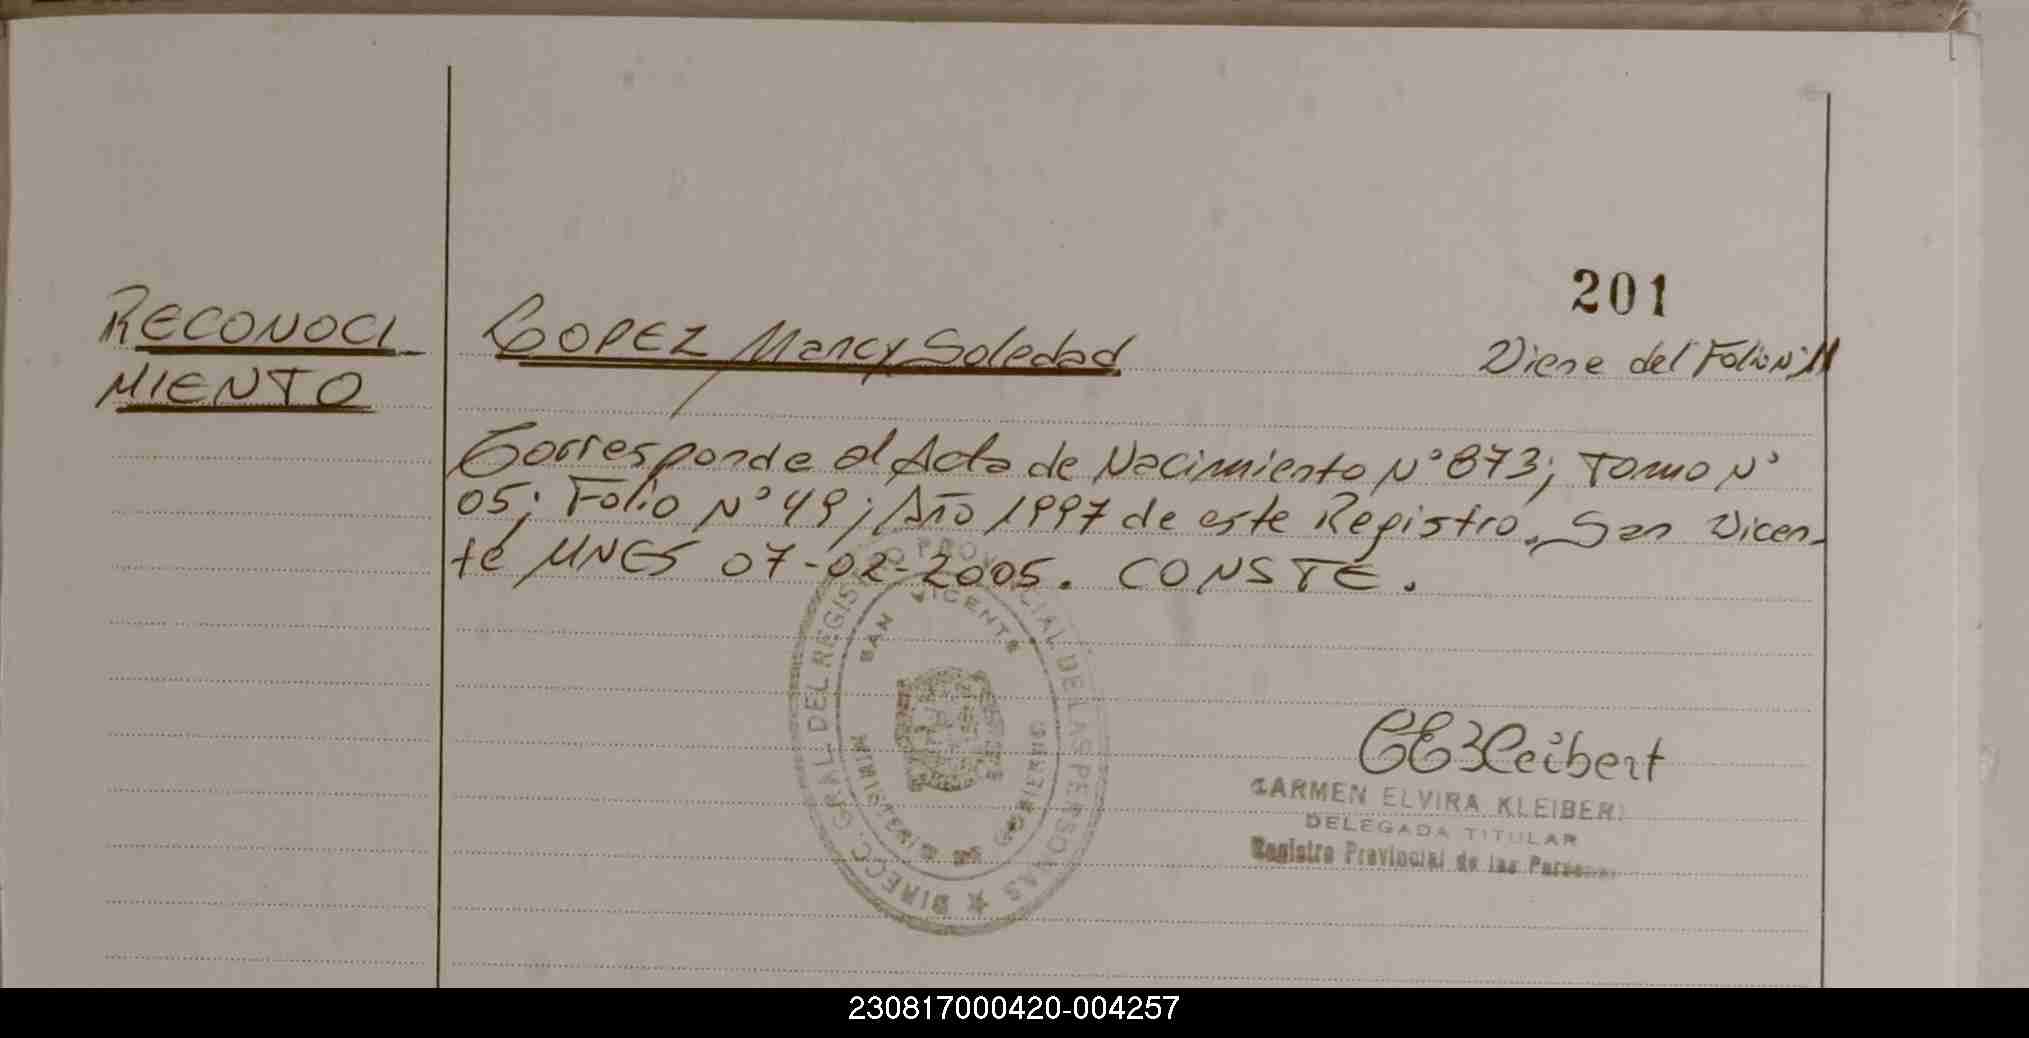 201
RECONOCI_
MIENTO
LOPEZ Mancy Soledad
Viene del Folio Nº 11
Corresponde al Acta de Nacimiento Nº 873; Tomo Nº
05; Folio Nº 49; Año 1997 de este Registro. San Vicen-
te MNES 07-02-2005. CONSTE.
DIRECC. GRAL. DEL REGISTRO PROVINCIAL DE LAS PERSONAS
SAN VICENTE
MINISTERIO DE GOBIERNO
CEKleibert
CARMEN ELVIRA KLEIBERT
DELEGADA TITULAR
Registro Provincial de las Personas
230817000420-004257